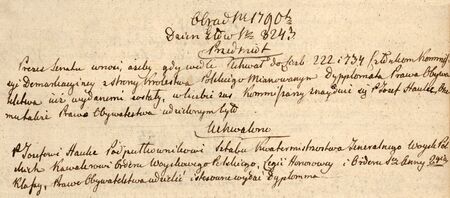 Obrad Nr 1790
Dzien. Głów. Nr 8243
Przedmiot
Prezes Senatu wnosi, ażeby gdy wedle Uchwał do liczb 222 i 734 Członkom Kommis
syi Demarkacyiney z strony Królestwa Polskiego Mianowanym Dyplomata Prawa Obywa
telstwa już wydanemi zostały, w liczbie zaś Kommissarzy znayduie się P. Józef Hauke, by
mu także Prawo Obywatelstwa udzielonym było
Uchwalono
P. Józefowi Hauke Podpułkownikowi Sztabu Kwatermistrzostwa Generalnego Woysk Pol
skich Kawalerowi Orderu Woyskowego Polskiego, Legii Honorowey i Orderu Stej Anny 2giej
Klassy, Prawo Obywatelstwa udzielić i stosowne wydać Dyploma